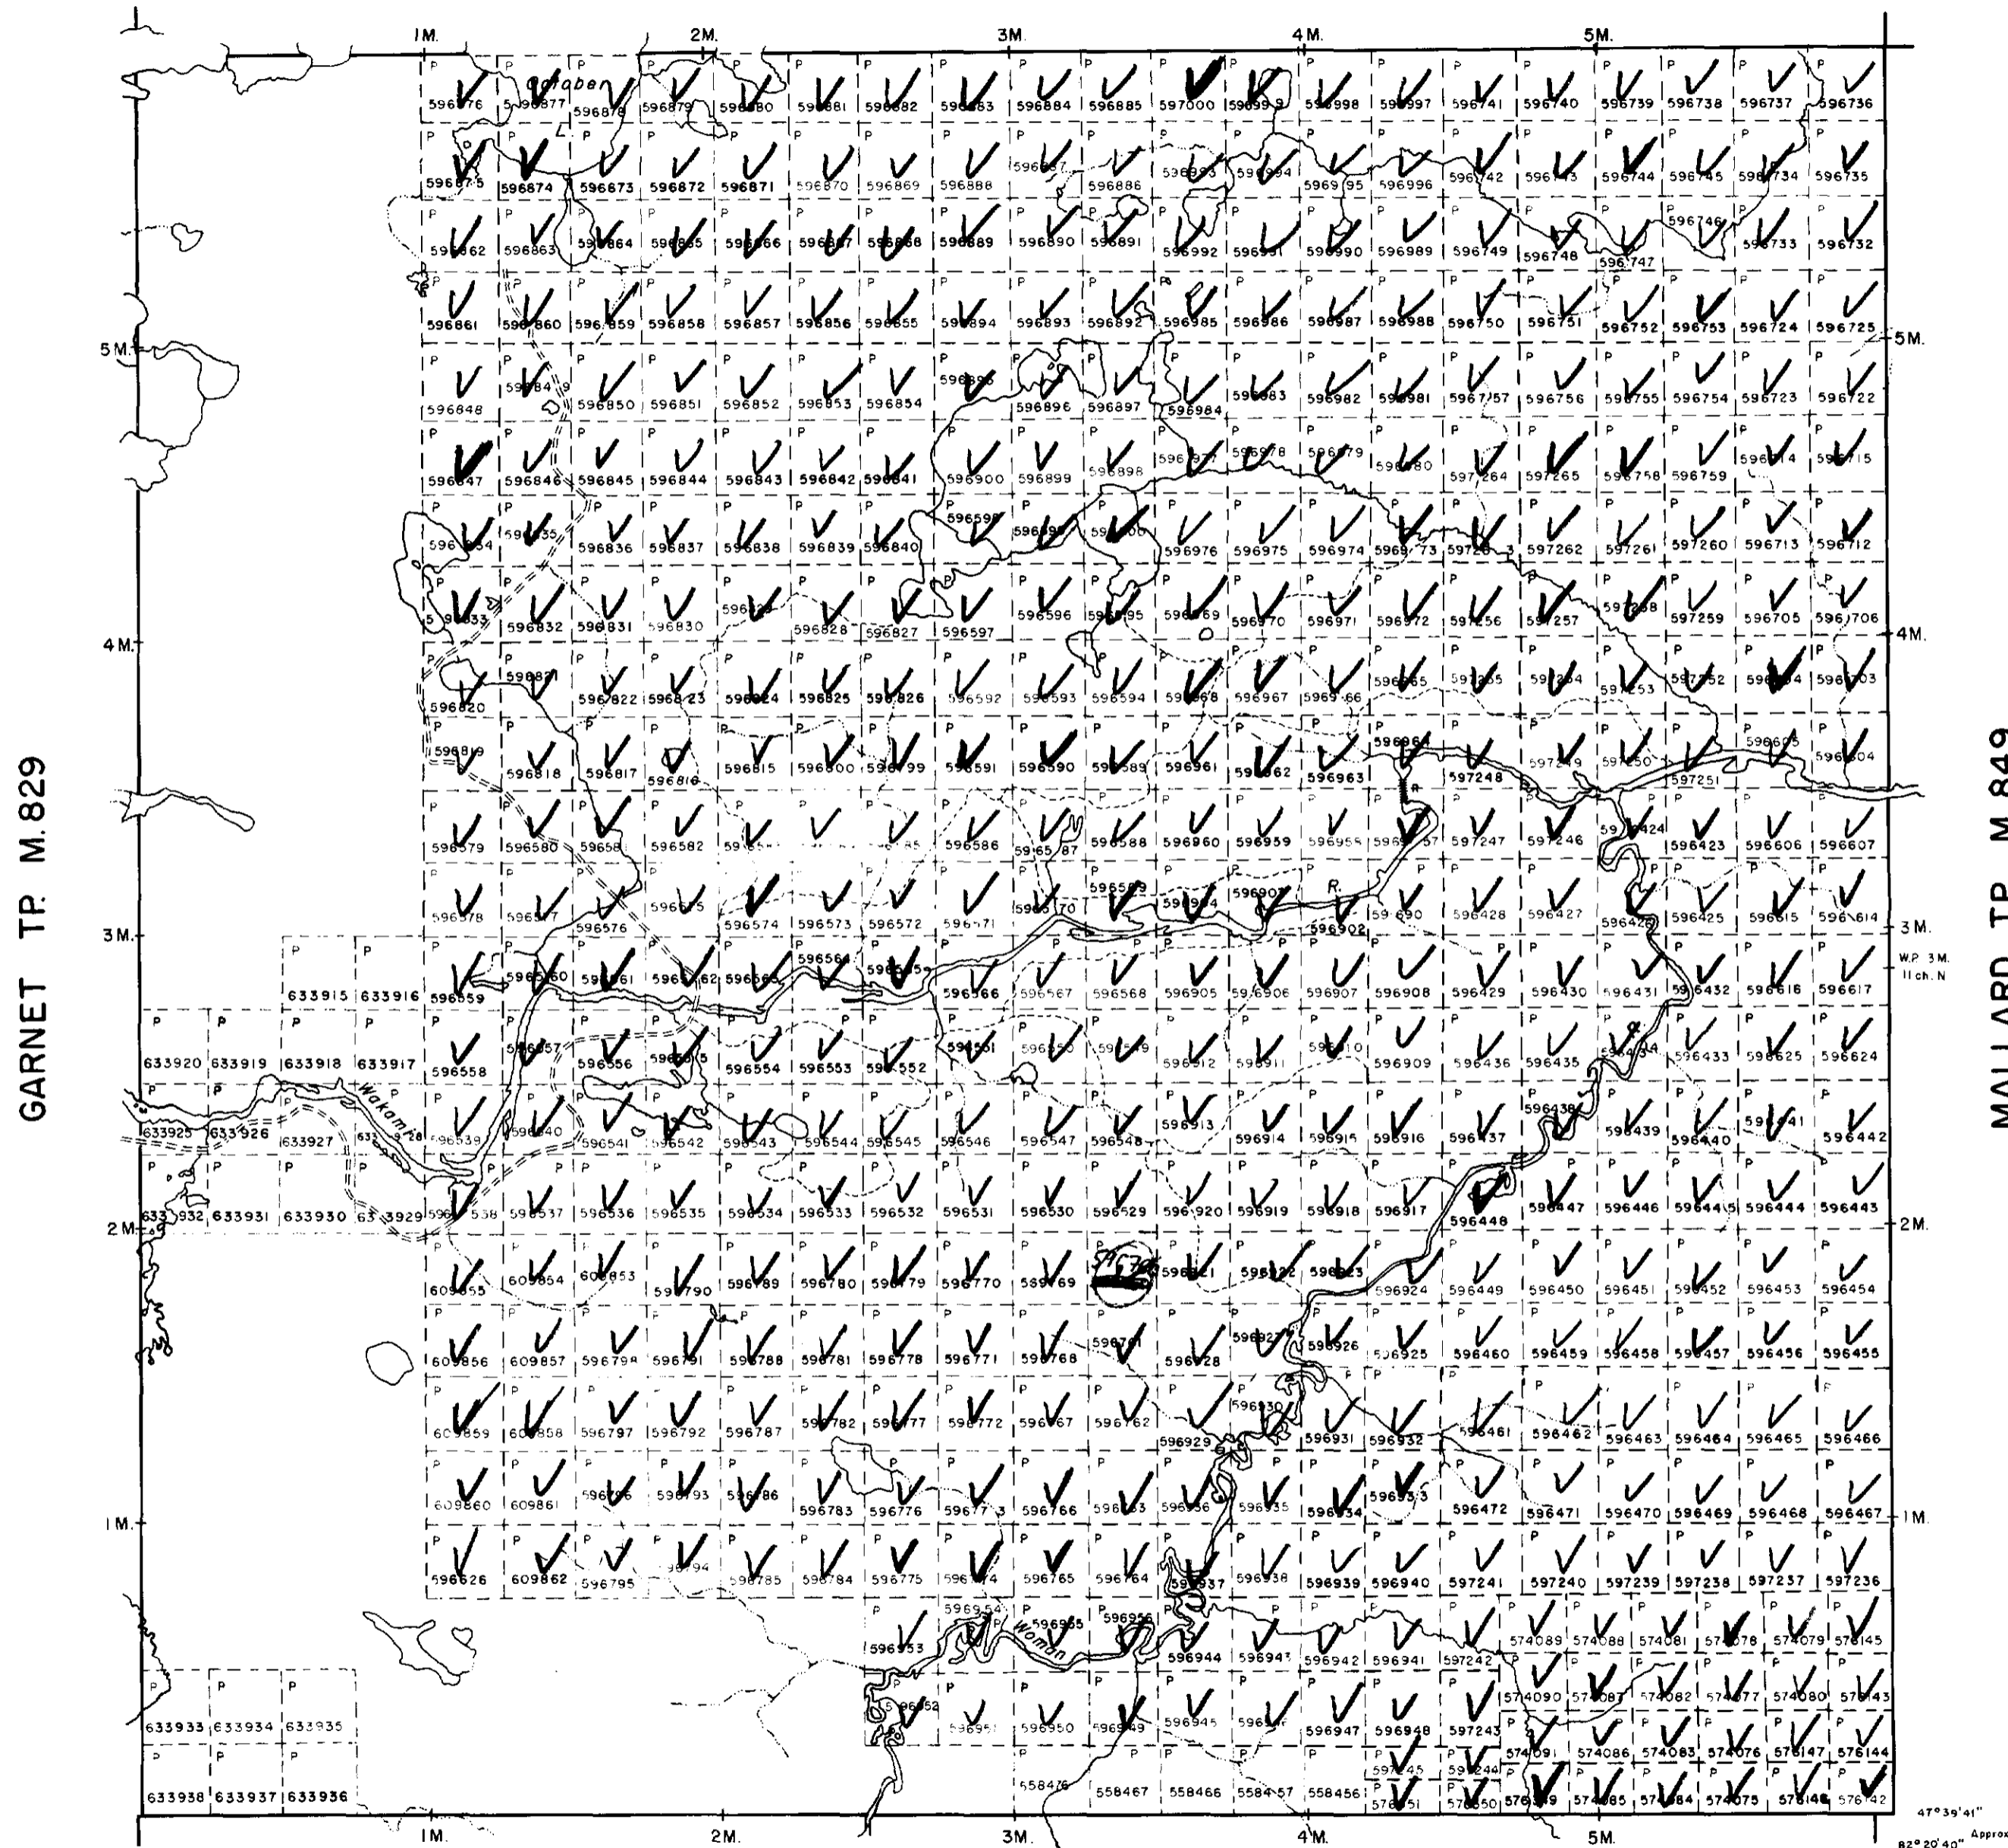 1M. 2M. 3M. 4M. 5M.
October
L.
596876 596877 596878 596879 596880 596881 596882 596883 596884 596885 597000 596999 596998 596997 596741 596740 596739 596738 596737 596736
596875 596874 596873 596872 596871 596870 596869 596888 596887 596886 596993 596994 596995 596996 596742 596743 596744 596745 596734 596735
596862 596863 596864 596865 596866 596867 596868 596889 596890 596891 596992 596991 596990 596989 596749 596748 596747 596746 596733 596732
596861 596860 596859 596858 596857 596856 596855 596894 596893 596892 596985 596986 596987 596988 596750 596751 596752 596753 596724 596725
5M. 5M.
596848 596849 596850 596851 596852 596853 596854 596895 596896 596897 596984 596983 596982 596981 596757 596756 596755 596754 596723 596722
596847 596846 596845 596844 596843 596842 596841 596900 596899 596898 596977 596978 596979 596980 597264 597265 596758 596759 596714 596715
596834 596835 596836 596837 596838 596839 596840 596598 596976 596975 596974 596973 597263 597262 597261 597260 596713 596712
596833 596832 596831 596830 596829 596828 596827 596597 596596 596595 596969 596970 596971 596972 597256 597257 597258 597259 596705 596706
4M. 4M.
596820 596821 596822 596823 596824 596825 596826 596592 596593 596594 596968 596967 596966 596965 597255 597254 597253 597252 596703
596819 596818 596817 596816 596815 596800 596799 596591 596590 596589 596961 596962 596963 596964 597248 597249 597250 597251 596605 596604
GARNET TP. M.829
MALLARD TP. M.849
596579 596580 596581 596582 596586 596587 596588 596960 596959 596958 596957 597247 597246 596424 596423 596606 596607
596578 596577 596576 596575 596574 596573 596572 596571 596570 596569 596904 596903 R. 596902 596428 596427 596426 596425 596615 596614
3M. 3M.
W.P. 3M.
11 ch. N
633915 633916 596559 596560 596561 596562 596563 596564 596565 596566 596567 596568 596905 596906 596907 596908 596429 596430 596431 596432 596616 596617
633920 633919 633918 633917 596558 596557 596556 596555 596554 596553 596552 596551 596550 596549 596912 596911 596910 596909 596436 596435 596433 596625 596624
Wakami
633925 633926 633927 633928 596539 596540 596541 596542 596543 596544 596545 596546 596547 596548 596913 596914 596915 596916 596437 596438 596439 596440 596441 596442
633932 633931 633930 633929 596538 596537 596536 596535 596534 596533 596532 596531 596530 596529 596920 596919 596918 596917 596448 596447 596446 596445 596444 596443
2M. 2M.
609855 609854 609853 596790 596789 596780 596779 596770 596769 596921 596922 596923 596924 596449 596450 596451 596452 596453 596454
609856 609857 596798 596791 596788 596781 596778 596771 596768 596761 596928 596927 596926 596925 596460 596459 596458 596457 596456 596455
609859 609858 596797 596792 596787 596782 596777 596772 596767 596762 596929 596930 596931 596932 596461 596462 596463 596464 596465 596466
609860 609861 596796 596793 596786 596783 596776 596773 596766 596763 596936 596935 596934 596933 596472 596471 596470 596469 596468 596467
1M. 1M.
596626 609862 596795 596794 596785 596784 596775 596774 596765 596764 596937 596938 596939 596940 597241 597240 597239 597238 597237 597236
596953 596954 596955 596956 596944 596943 596942 596941 597242 574089 574088 574081 574078 574079 576145
Woman
596952 596951 596950 596949 596945 596946 596947 596948 597243 574090 574087 574082 574077 574080 576143
633933 633934 633935 597245 597244 574091 574086 574083 574076 576147 576144
633938 633937 633936 558467 558466 558457 558456 574085 574084 574075 576142
1M. 2M. 3M. 4M. 5M.
47°39'41"
82°20'40" Approx